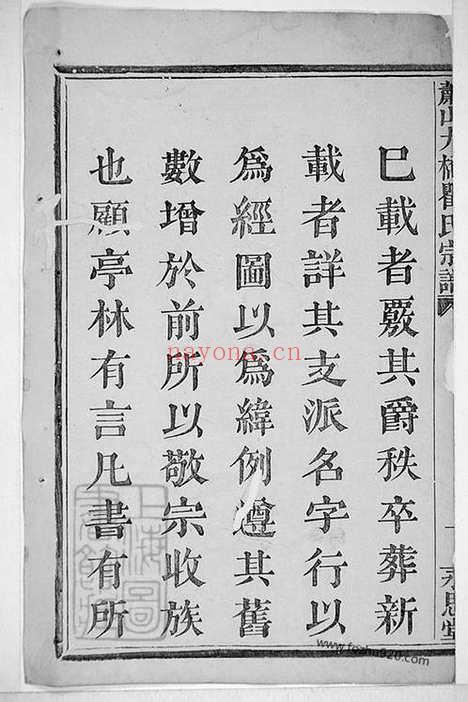 已載者覈其爵秩卒葬新
載者詳其支派名字行以
為經圖以為緯例遵其舊
數增於前所以敬宗收族
也顧亭林有言凡書有所
蕭山大橋瞿氏宗譜
nayona.cn
上海圖
www.fozhu920.com